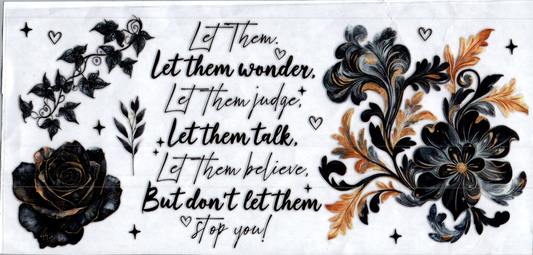 Let Them.
Let them wonder,
Let Them judge,
Let them talk,
Let Them believe,
But don't let them
stop you!